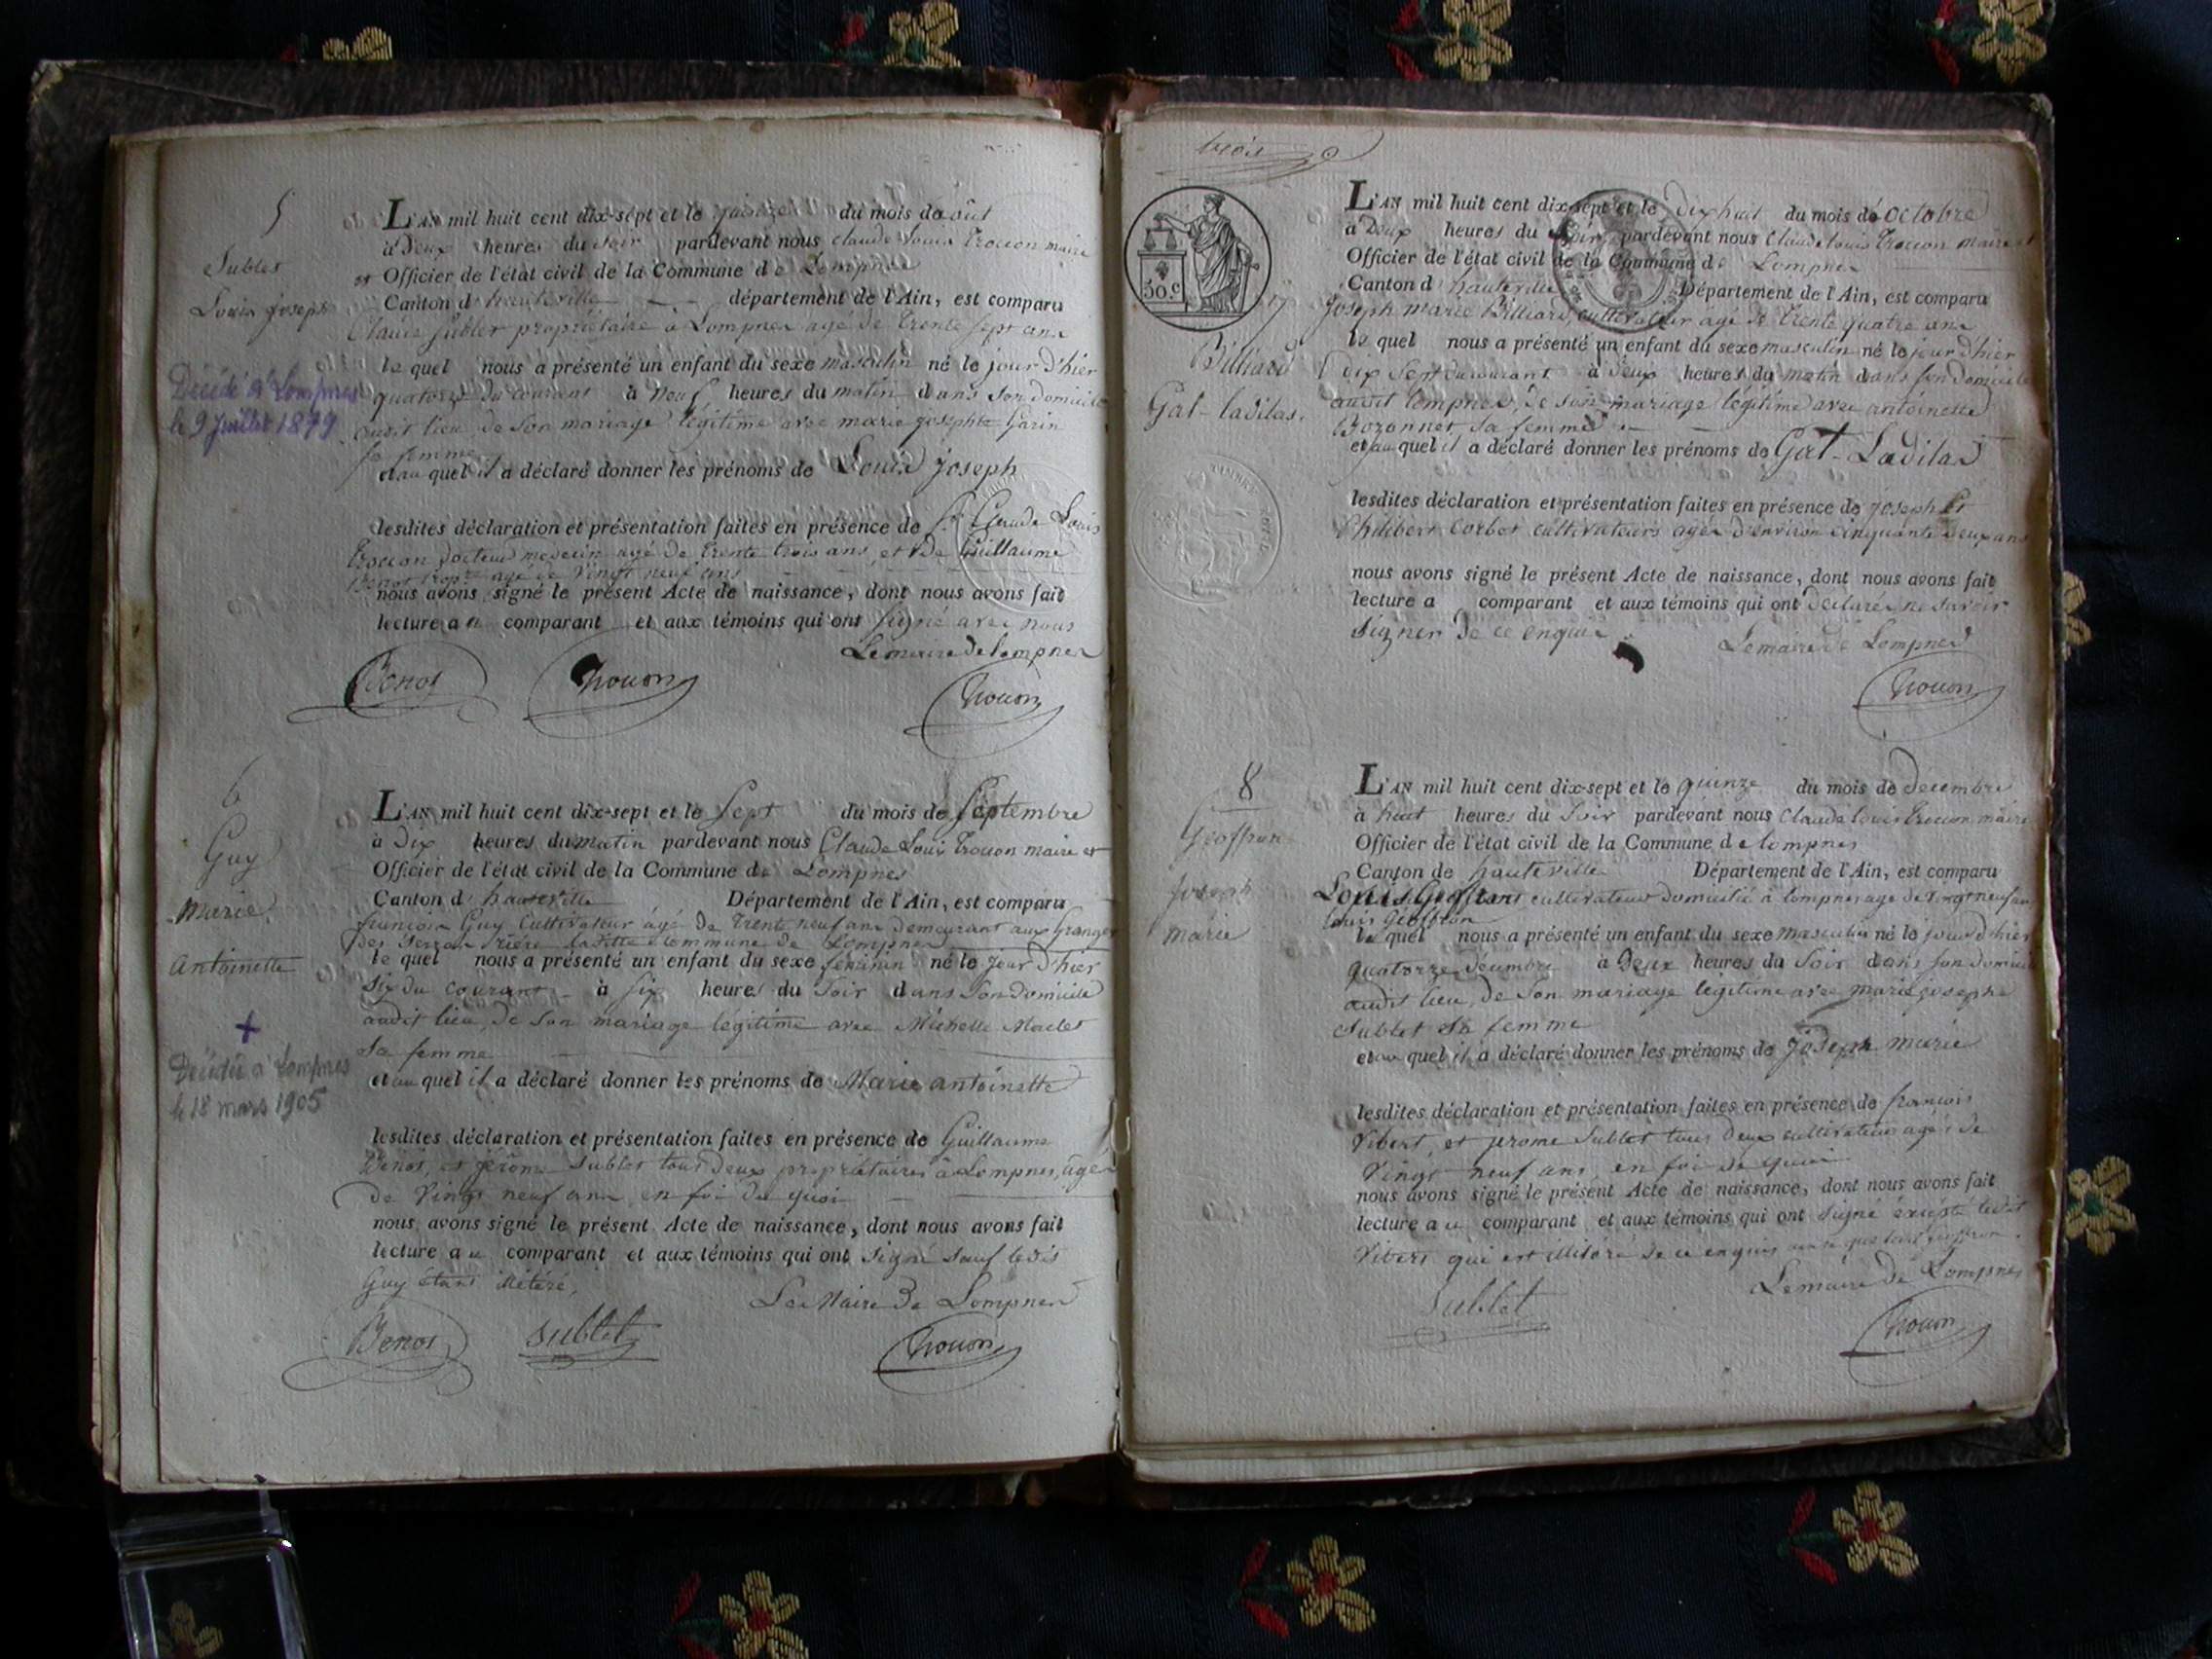 5
Sublet
Louis Joseph
Décédé à Lompnes
le 9 Juillet 1879
L'AN mil huit cent dix-sept et le quinze du mois de août
à Deux heures du soir pardevant nous Claude Louis Trocon maire
et Officier de l'état civil de la Commune de Lompnes
Canton d'hauteville département de l'Ain, est comparu
Claude Sublet propriétaire à Lompnes agé de trente sept ans
le quel nous a présenté un enfant du sexe masculin né le jour d'hier
quatorze du courant à neuf heures du matin dans son domicile
audit lieu, de son mariage légitime avec marie josephte Garin
sa femme
et au quel il a déclaré donner les prénoms de Louis joseph
lesdites déclaration et présentation faites en présence de Claude Louis
Trocon docteur medecin agé de trente trois ans, et de Guillaume
Benot agé de vingt neuf ans
nous avons signé le présent Acte de naissance, dont nous avons fait
lecture au comparant et aux témoins qui ont signé avec nous
Le maire de lompnes
Benot Trocon Trocon
6
Guy
Marie
Antoinette
+
Décédée à Lompnes
le 18 mars 1905
L'AN mil huit cent dix-sept et le sept du mois de septembre
à Dix heures du matin pardevant nous Claude Louis Trocon maire et
Officier de l'état civil de la Commune de Lompnes
Canton d'hauteville Département de l'Ain, est comparu
francois Guy Cultivateur âgé de trente neuf ans demeurant aux Granges
des commune de Lompnes
le quel nous a présenté un enfant du sexe féminin né le jour d'hier
six du courant à six heures du soir dans son domicile
audit lieu, de son mariage légitime avec Michelle Maclet
sa femme
et au quel il a déclaré donner les prénoms de Marie antoinette
lesdites déclaration et présentation faites en présence de Guillaume
Benot, et jérôme Sublet tous deux propriétaires à Lompnes, âgés
de vingt neuf ans, en foi de quoi
nous avons signé le présent Acte de naissance, dont nous avons fait
lecture au comparant et aux témoins qui ont signé sauf ledit
Guy étant illétéré,
Le Maire de Lompnes
Benot Sublet Trocon
trois
50.c
7
Billiard
Gat-ladilas.
TIMBRE ROYAL
L'AN mil huit cent dix-sept et le dix huit du mois de octobre
à Deux heures du soir pardevant nous Claude louis Trocon maire et
Officier de l'état civil de la Commune de Lompnes
Canton d'hauteville Département de l'Ain, est comparu
Joseph marie Billiard, cultivateur âgé de trente quatre ans
le quel nous a présenté un enfant du sexe masculin né le jour d'hier
dix sept du courant à deux heures du matin dans son domicile
audit lompnes, de son mariage légitime avec antoinette
Bozonnet sa femme
et au quel il a déclaré donner les prénoms de Gat-Ladilas
lesdites déclaration et présentation faites en présence de joseph et
Philibert Corbet cultivateurs agés d'environ cinquante deux ans
nous avons signé le présent Acte de naissance, dont nous avons fait
lecture a comparant et aux témoins qui ont déclarés ne savoir
signer de ce enquis
Le maire de Lompnes
Trocon
8
Geoffron
joseph
marie
L'AN mil huit cent dix-sept et le quinze du mois de decembre
à huit heures du soir pardevant nous Claude louis Trocon maire
Officier de l'état civil de la Commune de lompnes
Canton de hauteville Département de l'Ain, est comparu
Louis Geoffron cultivateur domicilié à lompnes agé de vingt neuf ans
louis Geoffron
le quel nous a présenté un enfant du sexe masculin né le jour d'hier
quatorze décembre à deux heures du soir dans son domicile
audit lieu, de son mariage légitime avec marie josephe
Sublet sa femme
et au quel il a déclaré donner les prénoms de joseph marie
lesdites déclaration et présentation faites en présence de francois
Vibert, et jerome Sublet tous deux cultivateurs agés de
vingt neuf ans, en foi de quoi
nous avons signé le présent Acte de naissance, dont nous avons fait
lecture au comparant et aux témoins qui ont signé excepté ledit
Vibert qui est illitéré de ce enquis
Le maire de Lompnes
Sublet
Trocon